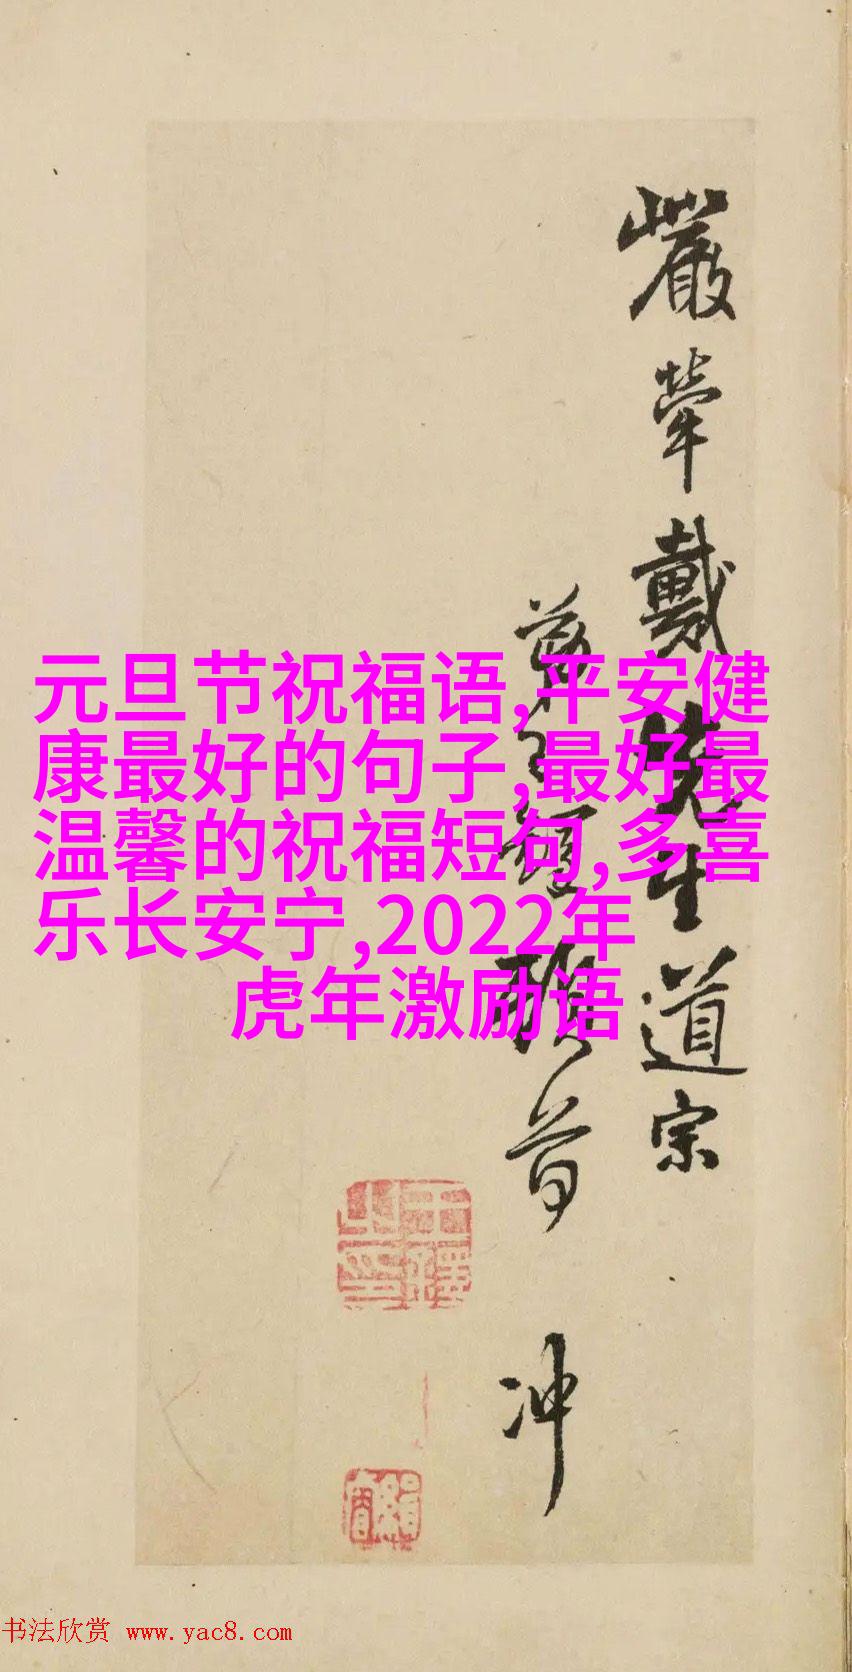 嚴犖戴先生道宗
頓首
冲
元旦节祝福语,平安健
康最好的句子,最好最
温馨的祝福短句,多喜
乐长安宁,2022年
虎年激励语
书法欣赏 www.yac8.com